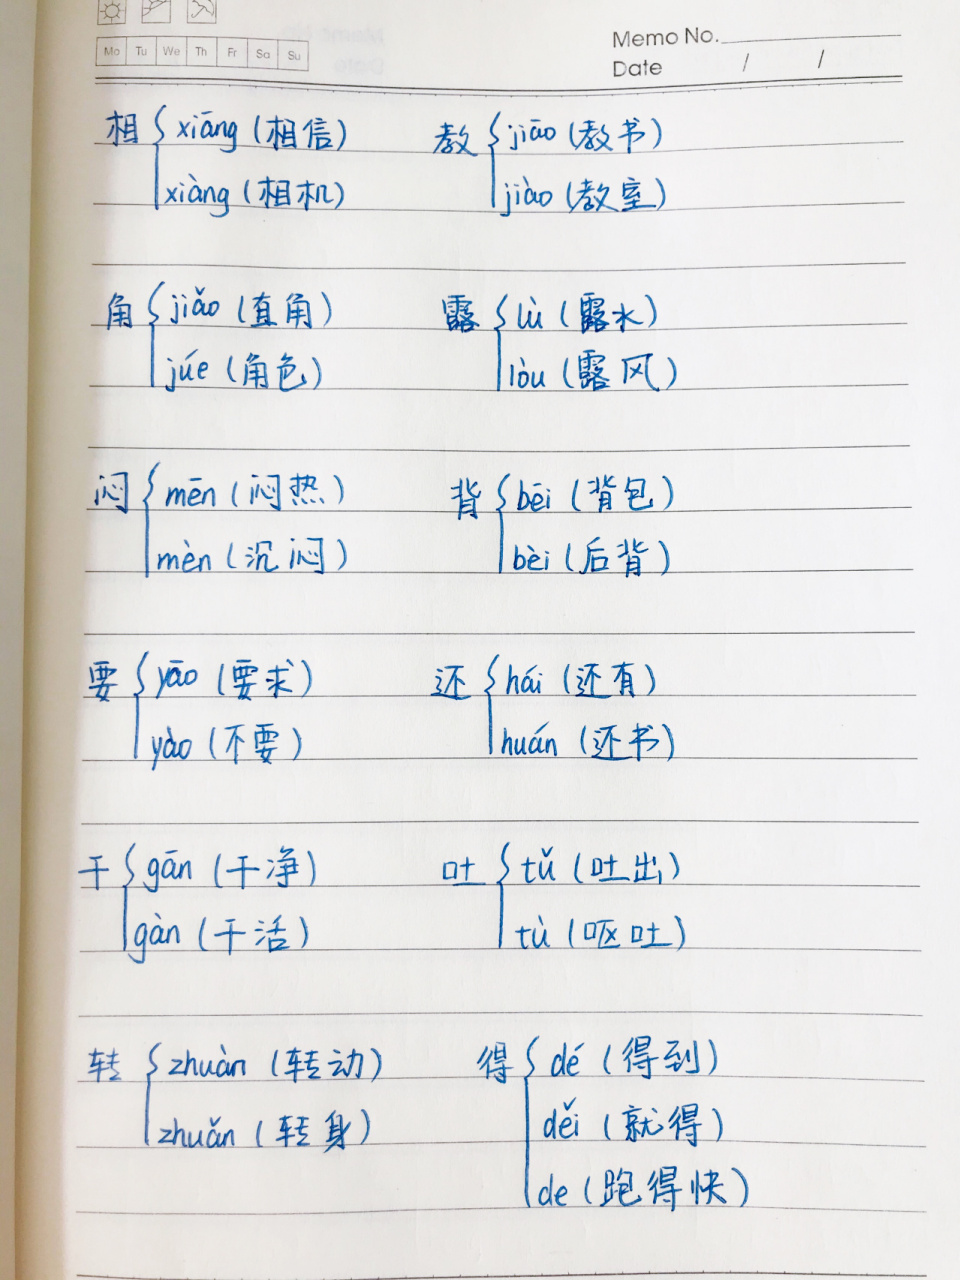 Mo Tu We Th Fr Sa Su
Memo No.
Date / /
相 xiāng (相信)
xiàng (相机)
教 jiāo (教书)
jiào (教室)
角 jiǎo (直角)
júe (角色)
露 lù (露水)
lòu (露风)
闷 mēn (闷热)
mèn (沉闷)
背 bēi (背包)
bèi (后背)
要 yāo (要求)
yào (不要)
还 hái (还有)
huán (还书)
干 gān (干净)
gàn (干活)
吐 tǔ (吐出)
tù (呕吐)
转 zhuàn (转动)
zhuǎn (转身)
得 dé (得到)
děi (就得)
de (跑得快)